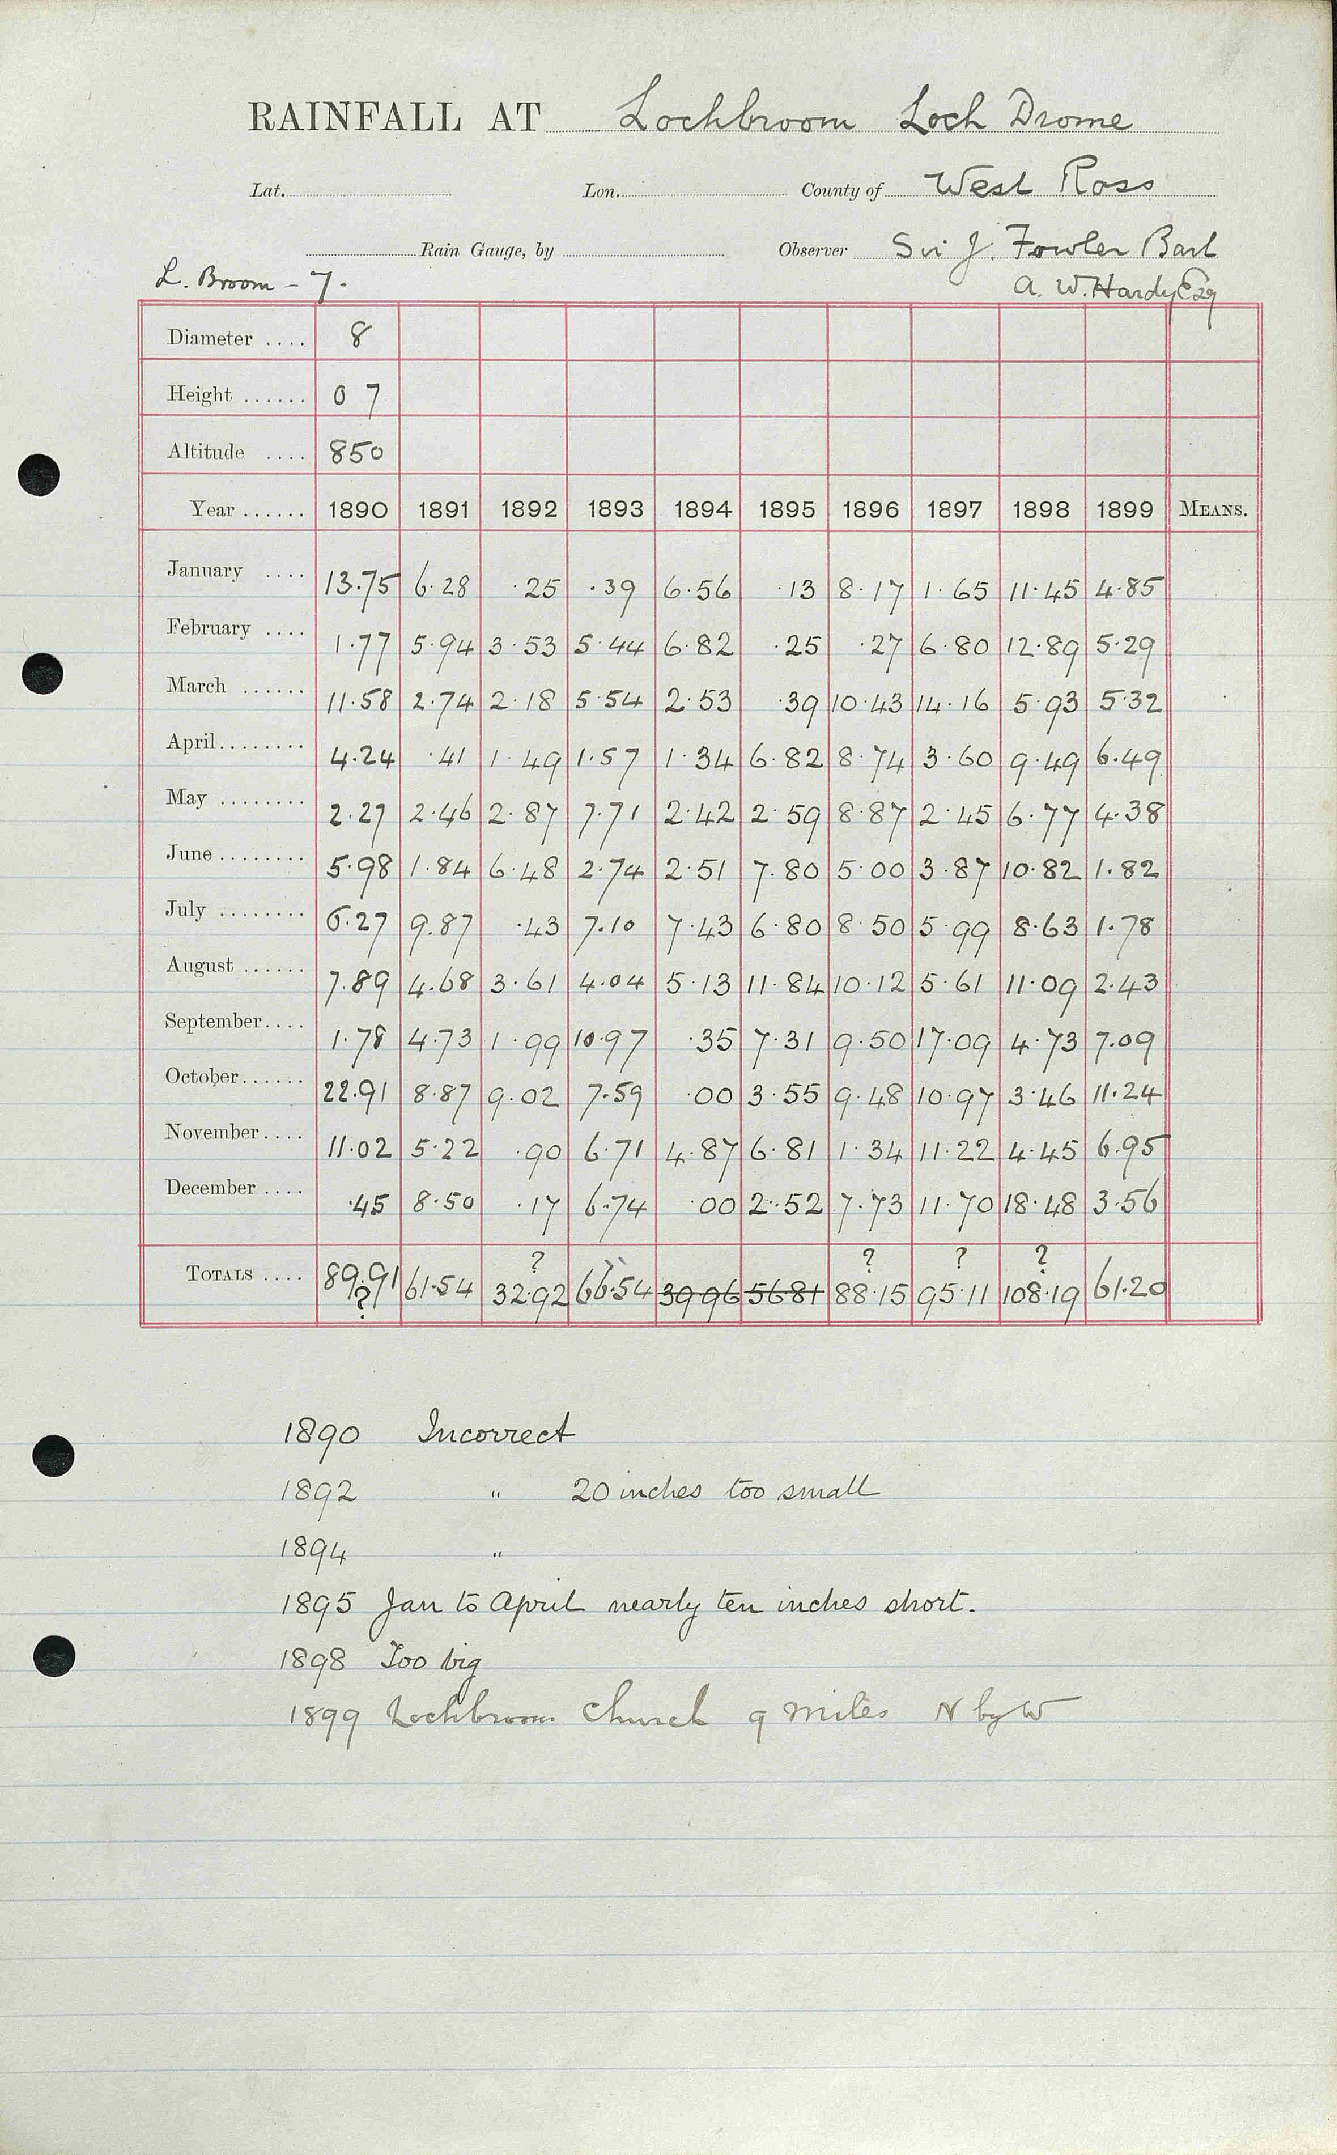 RAINFALL AT Lochbroom Loch Drome
Lat. Lon. County of West Ross
Rain Gauge, by Observer Sir J. Fowler Bart
L. Broom - 7. A. W. Hardy Esq
Diameter .... 8
Height ...... 0 7
Altitude .... 850
Year ...... 1890 1891 1892 1893 1894 1895 1896 1897 1898 1899 MEANS.
January .... 13.75 6.28 .25 .39 6.56 .13 8.17 1.65 11.45 4.85
February .... 1.77 5.94 3.53 5.44 6.82 .25 .27 6.80 12.89 5.29
March ...... 11.58 2.74 2.18 5.54 2.53 .39 10.43 14.16 5.93 5.32
April........ 4.24 .41 1.49 1.57 1.34 6.82 8.74 3.60 9.49 6.49
May ........ 2.27 2.46 2.87 7.71 2.42 2.59 8.87 2.45 6.77 4.38
June ........ 5.98 1.84 6.48 2.74 2.51 7.80 5.00 3.87 10.82 1.82
July ........ 6.27 9.87 .43 7.10 7.43 6.80 8.50 5.99 8.63 1.78
August ...... 7.89 4.68 3.61 4.04 5.13 11.84 10.12 5.61 11.09 2.43
September.... 1.78 4.73 1.99 10.97 .35 7.31 9.50 17.09 4.73 7.09
October...... 22.91 8.87 9.02 7.59 .00 3.55 9.48 10.97 3.46 11.24
November.... 11.02 5.22 .90 6.71 4.87 6.81 1.34 11.22 4.45 6.95
December .... .45 8.50 .17 6.74 .00 2.52 7.73 11.70 18.48 3.56
? ? ? ?
TOTALS .... 89.91 61.54 32.92 66.54 39.96 56.81 88.15 95.11 108.19 61.20
?
1890 Incorrect
1892 " 20 inches too small
1894 "
1895 Jan to April nearly ten inches short.
1898 Too big
1899 Lochbroom Church 9 miles N by W